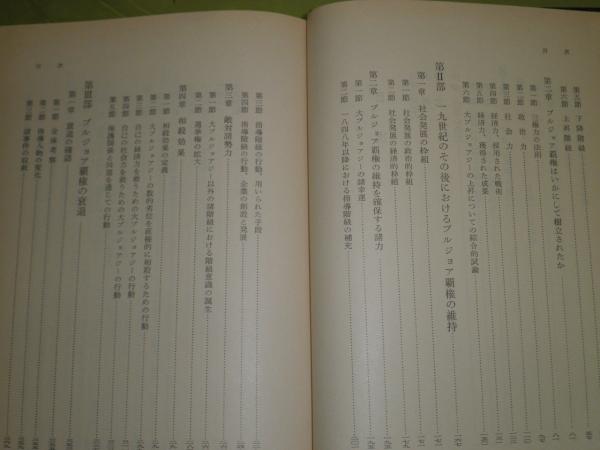 目次
第五節 下降階級
第六節 上昇階級
第二章 ブルジョア覇権はいかにして樹立されたか
第一節 三権力の法則
第二節 政治力
第三節 社会力
第四節 経済力、採用された戦術
第五節 経済力、獲得された成果
第六節 大ブルジョアジーの上昇についての綜合的試論
第Ⅱ部 一九世紀のその後におけるブルジョア覇権の維持
第一章 社会発展の枠組
第一節 社会発展の政治的枠組
第二節 社会発展の経済的枠組
第二章 ブルジョア覇権の維持を確保する諸力
第一節 大ブルジョアジーの諸幸運
第二節 一八四八年以降における指導階級の補充
目次
第三節 指導階級の行動、用いられた手段
第四節 指導階級の行動、企業の創設と発展
第三章 敵対諸勢力
第一節 大ブルジョアジー以外の諸階級における階級意識の誕生
第二節 選挙権の拡大
第四章 相殺効果
第一節 相殺効果の定義
第二節 大ブルジョアジーの数的劣位を直接的に相殺するための行動
第三節 自己の経済力を救うための大ブルジョアジーの行動
第四節 自己の社会力を救うための大ブルジョアジーの行動
第五節
第Ⅲ部 ブルジョア覇権の衰退
第一章 衰退の確認
第一節 全体考察
第二節 指導人物の変化
第三節 諸事件の収斂